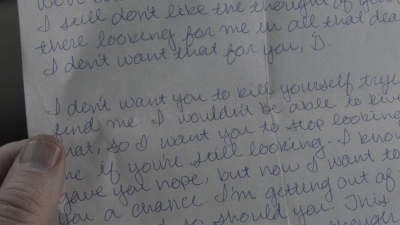 I still don't like the thought of you
there looking for me in all that dea
I don't want that for you, D.
I don't want you to kill yourself tryi
find me. I wouldn't be able to live
that, so I want you to stop looking
me if you're still looking. I know
gave you hope, but now I want to
you a chance. I'm getting out of
should you. This